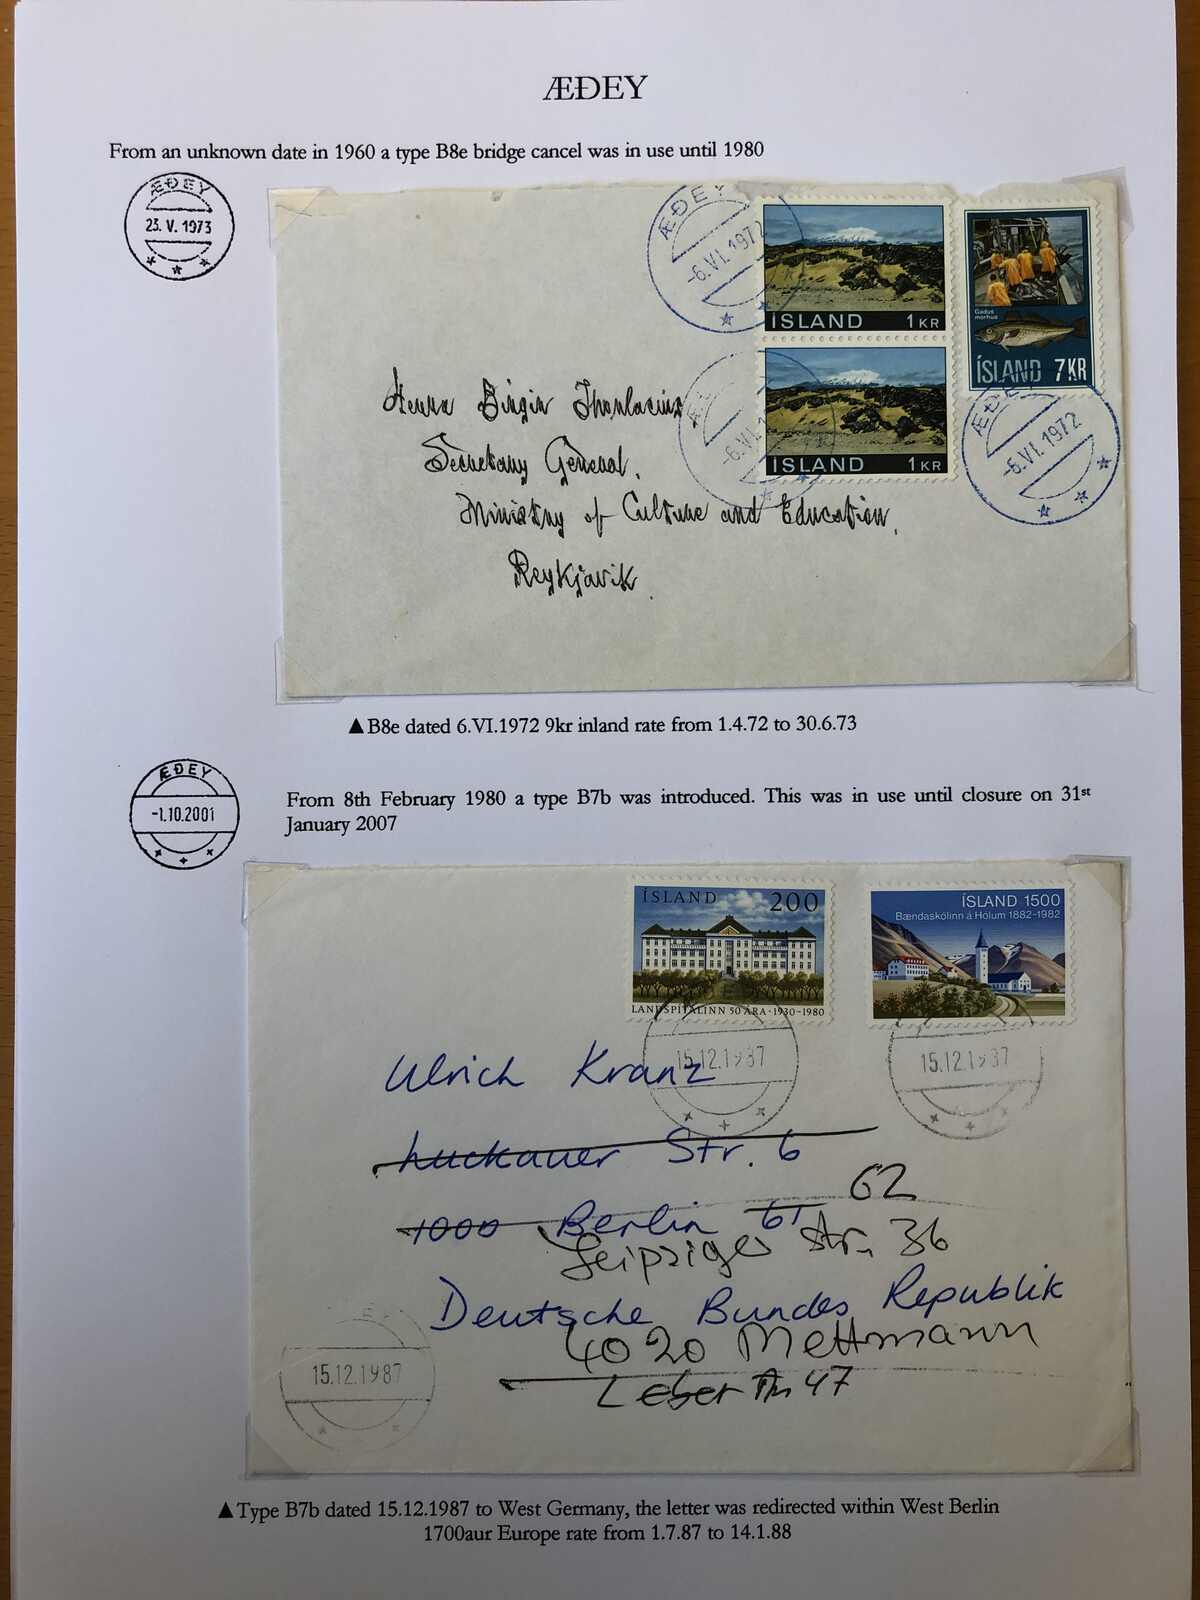 ÆÐEY
From an unknown date in 1960 a type B8e bridge cancel was in use until 1980
ÆÐEY
23. V. 1973
ÆÐEY
-6.VI.1972
ÍSLAND 1 KR
Gadus
morhua
ÍSLAND 7 KR
-6.VI.1
ÍSLAND 1 KR
ÆÐEY
-6.VI.1972
Herra Birgir Thorlacius
Secretary General.
Ministry of Culture and Education,
Reykjavik.
▲B8e dated 6.VI.1972 9kr inland rate from 1.4.72 to 30.6.73
ÆÐEY
-1.10.2001
From 8th February 1980 a type B7b was introduced. This was in use until closure on 31st
January 2007
ÍSLAND 200
LANDSPÍTALINN 50 ÁRA · 1930-1980
ÍSLAND 1500
Bændaskólinn á Hólum 1882-1982
15.12.1987
15.12.1987
Ulrich Kranz
Luckauer Str. 6
1000 Berlin 61 62
Leipziger Str. 36
Deutsche Bundes Republik
4020 Mettmann
Leber 47
15.12.1987
▲Type B7b dated 15.12.1987 to West Germany, the letter was redirected within West Berlin
1700aur Europe rate from 1.7.87 to 14.1.88